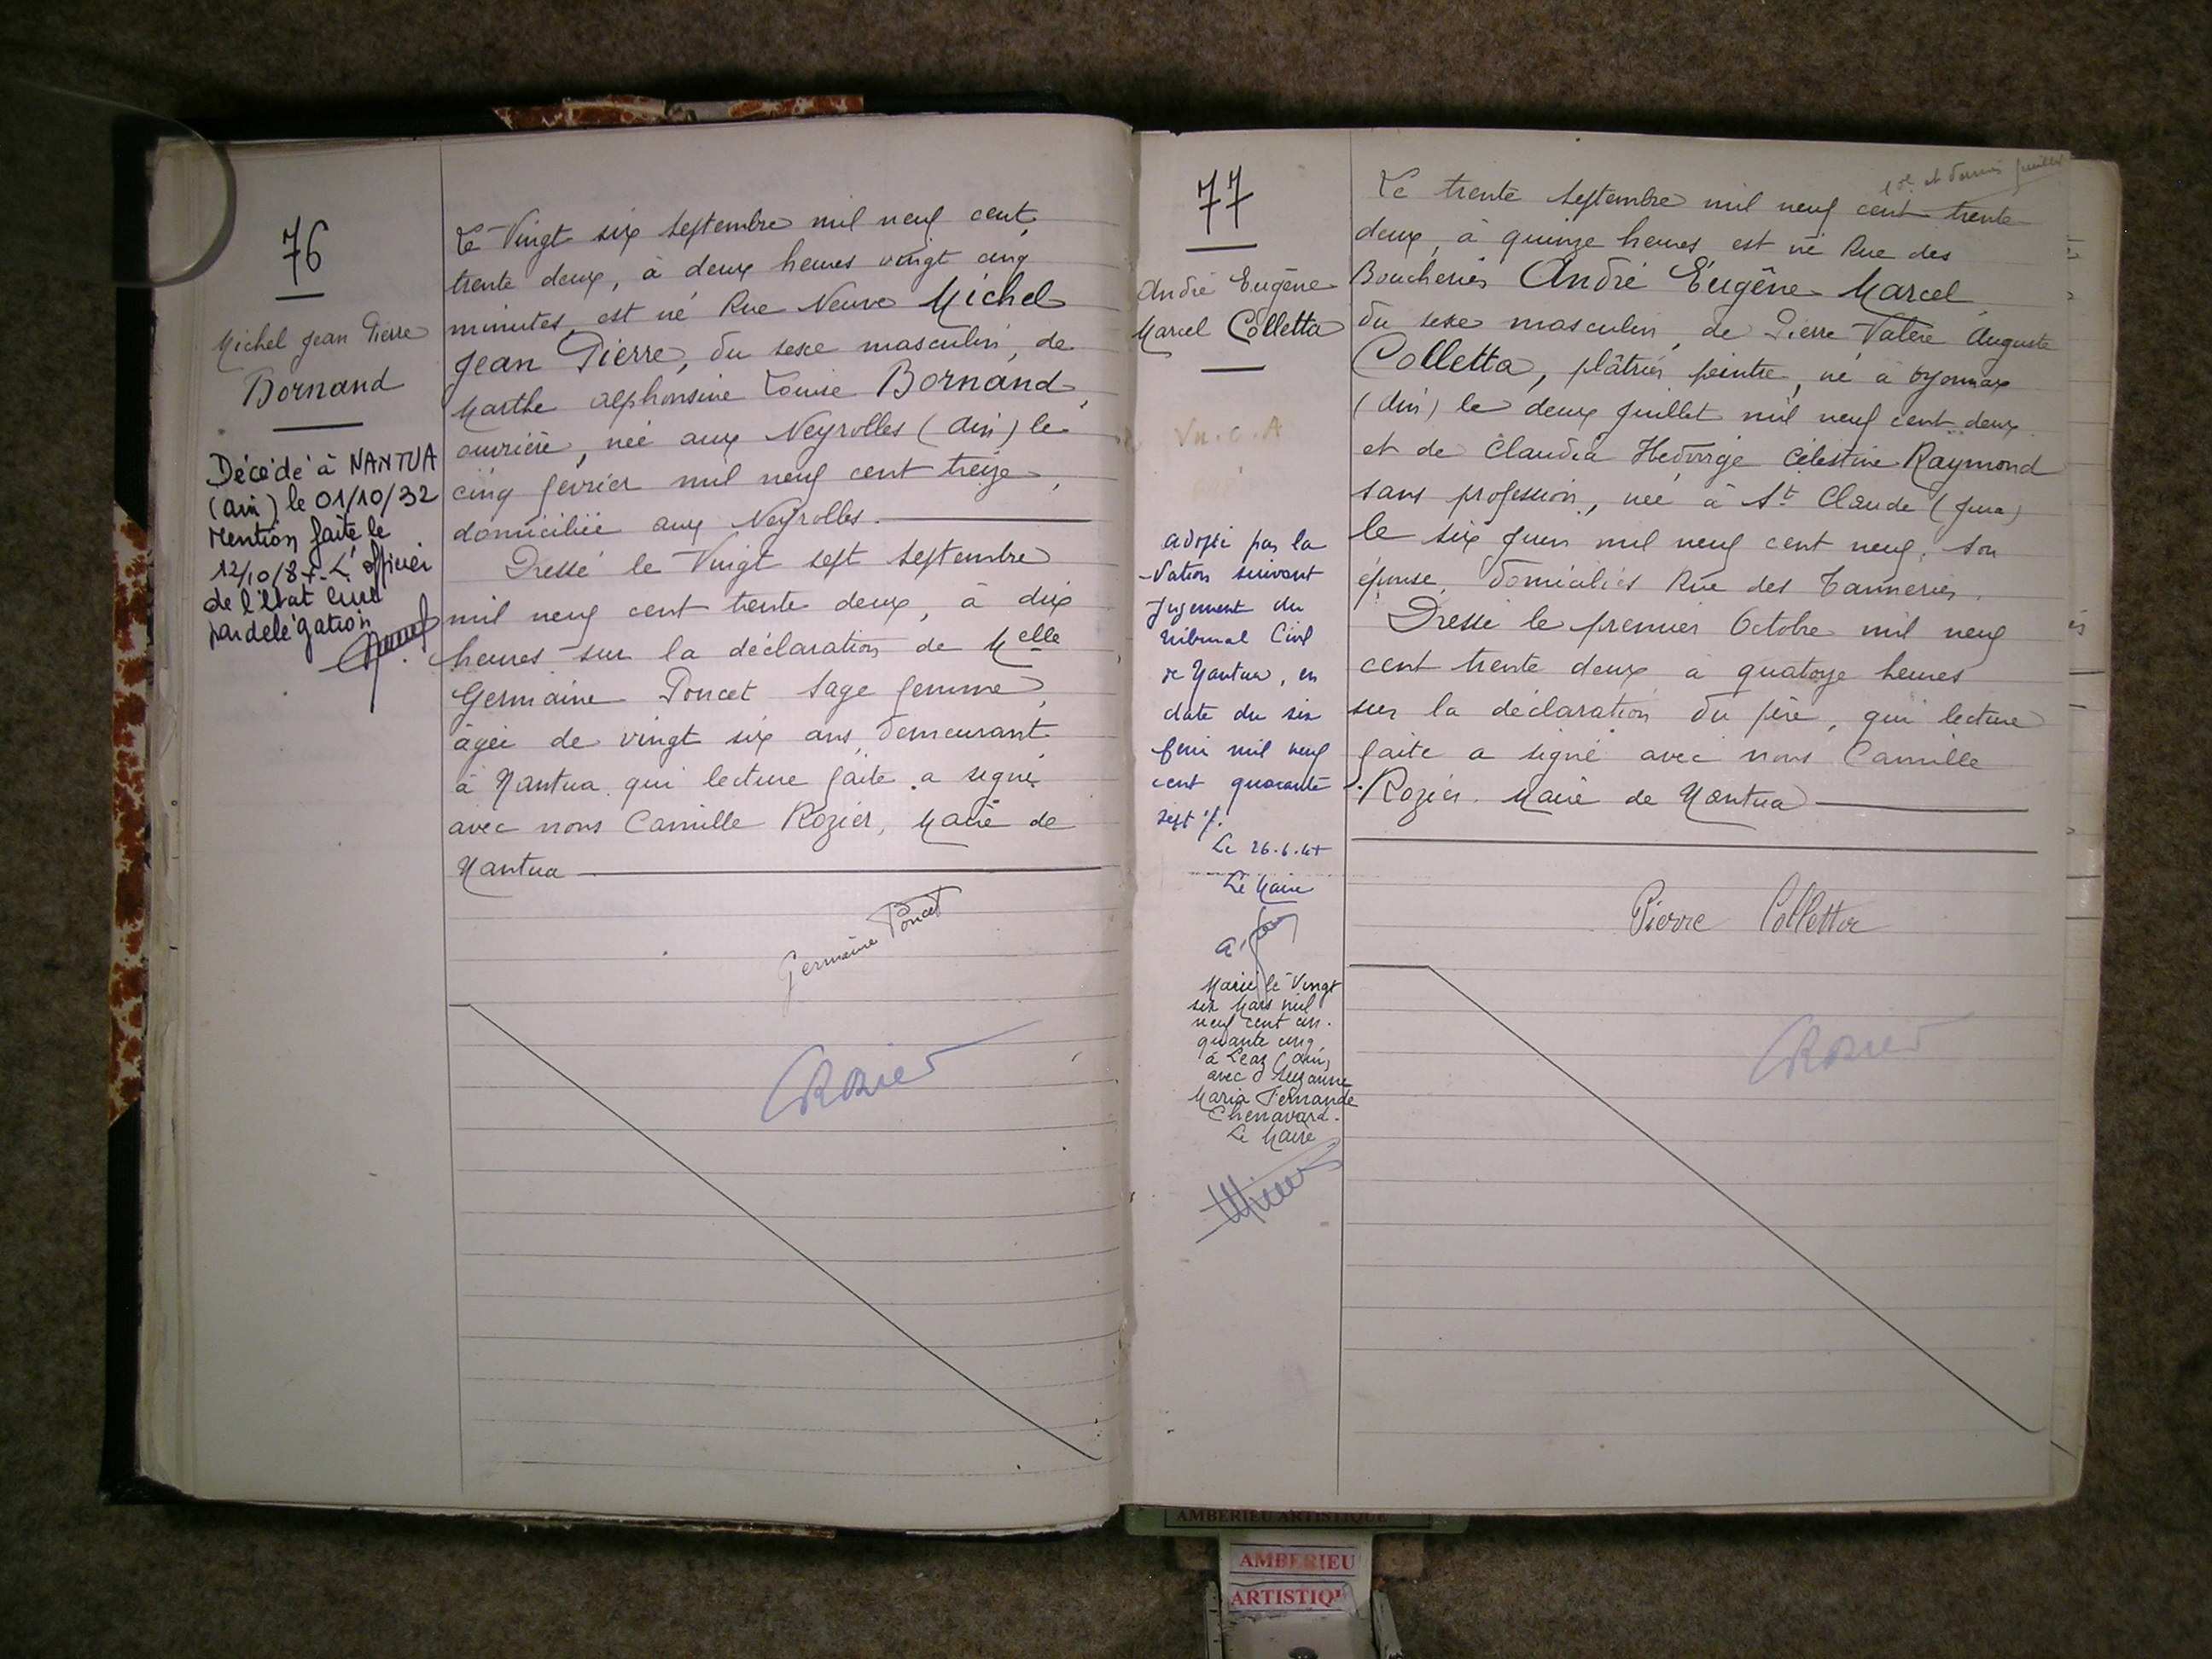 76
Michel Jean Pierre
Bornand
Décédé à NANTUA
(Ain) le 01/10/32
Mention faite le
12/10/87. L'officier
de l'état civil
par délégation
Le Vingt six septembre mil neuf cent
trente deux, à deux heures vingt cinq
minutes, est né Rue Neuve Michel
Jean Pierre, du sexe masculin, de
Marthe Alphonsine Louise Bornand,
ouvrière, née aux Neyrolles (Ain) le
cinq février mil neuf cent treize,
domiciliée aux Neyrolles.
Dressé le Vingt sept septembre
mil neuf cent trente deux, à dix
heures sur la déclaration de Melle
Germaine Poncet sage femme,
âgée de vingt six ans, demeurant
à Nantua qui lecture faite a signé
avec nous Camille Rozier, Maire de
Nantua
Germaine Poncet
CRozier
77
André Eugène
Marcel Colletta
Vu. C. A
adopté par la
Nation suivant
jugement du
tribunal Civil
de Nantua, en
date du six
juin mil neuf
cent quarante
sept
Le 26.6.47
Le Maire
Marié le Vingt
six Mars mil
neuf cent cin-
quante cinq
à Léaz (Ain)
avec Suzanne
Maria Fernande
Chenavard.
Le Maire
1er et dernier feuillet
Le trente septembre mil neuf cent trente
deux, à quinze heures est né Rue des
Boucheries André Eugène Marcel
du sexe masculin, de Pierre Valère Auguste
Colletta, plâtrier peintre, né à Oyonnax
(Ain) le deux Juillet mil neuf cent deux
et de Claudia Hedwige Célestine Raymond
sans profession, née à St Claude (Jura)
le six Juin mil neuf cent neuf, son
épouse, domiciliés Rue des Tanneries.
Dressé le premier Octobre mil neuf
cent trente deux à quatorze heures
sur la déclaration du père, qui lecture
faite a signé avec nous Camille
Rozier. Maire de Nantua
Pierre Colletta
CRozier
AMBERIEU ARTISTIQUE
AMBERIEU
ARTISTIQU